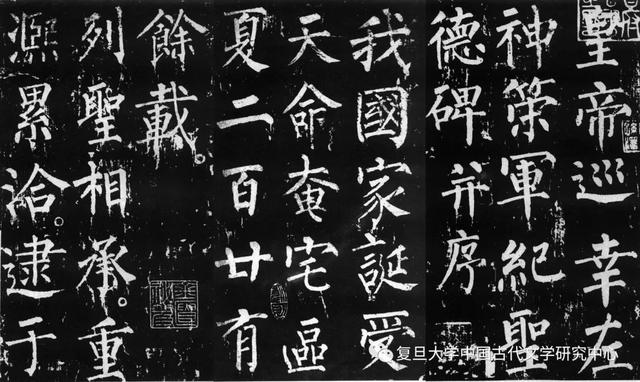 皇帝巡幸左
神策軍紀聖
德碑并序
我國家誕受
天命奄宅區
夏二百廿有
餘載
列聖相承重
熙累洽逮于
复旦大学中国古代文学研究中心